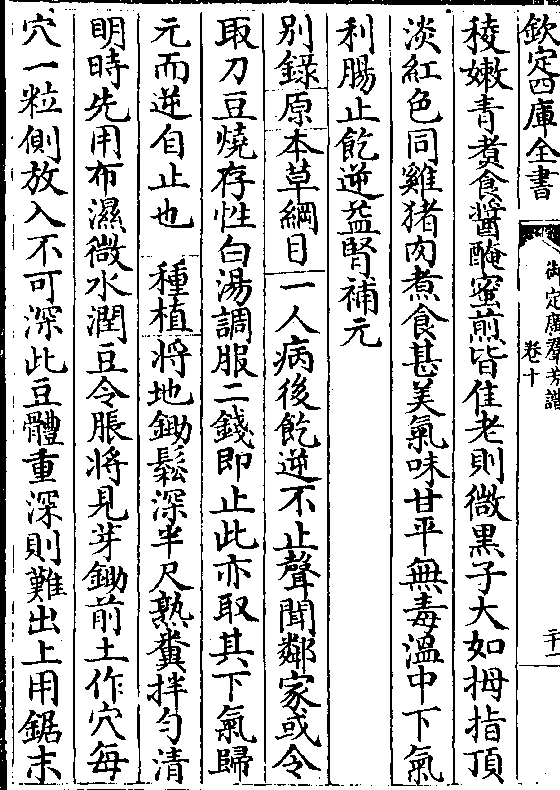 欽定四庫全書
御定廣羣芳譜
卷十
二十一
稜嫩青煮食醬醃蜜煎皆佳老則微黒子大如拇指頂
淡紅色同雞猪肉煮食甚美氣味甘平無毒溫中下氣
利腸止飥逆益腎補元
别錄原本草綱目一人病後飥逆不止聲聞鄰家或令
取刀豆燒存性白湯調服二錢即止此亦取其下氣歸
元而逆自止也　種植將地鋤鬆深半尺熟糞拌勻清
明時先用布濕微水潤豆令脹將見芽鋤前土作穴每
穴一粒側放入不可深此豆體重深則難出上用鋸末